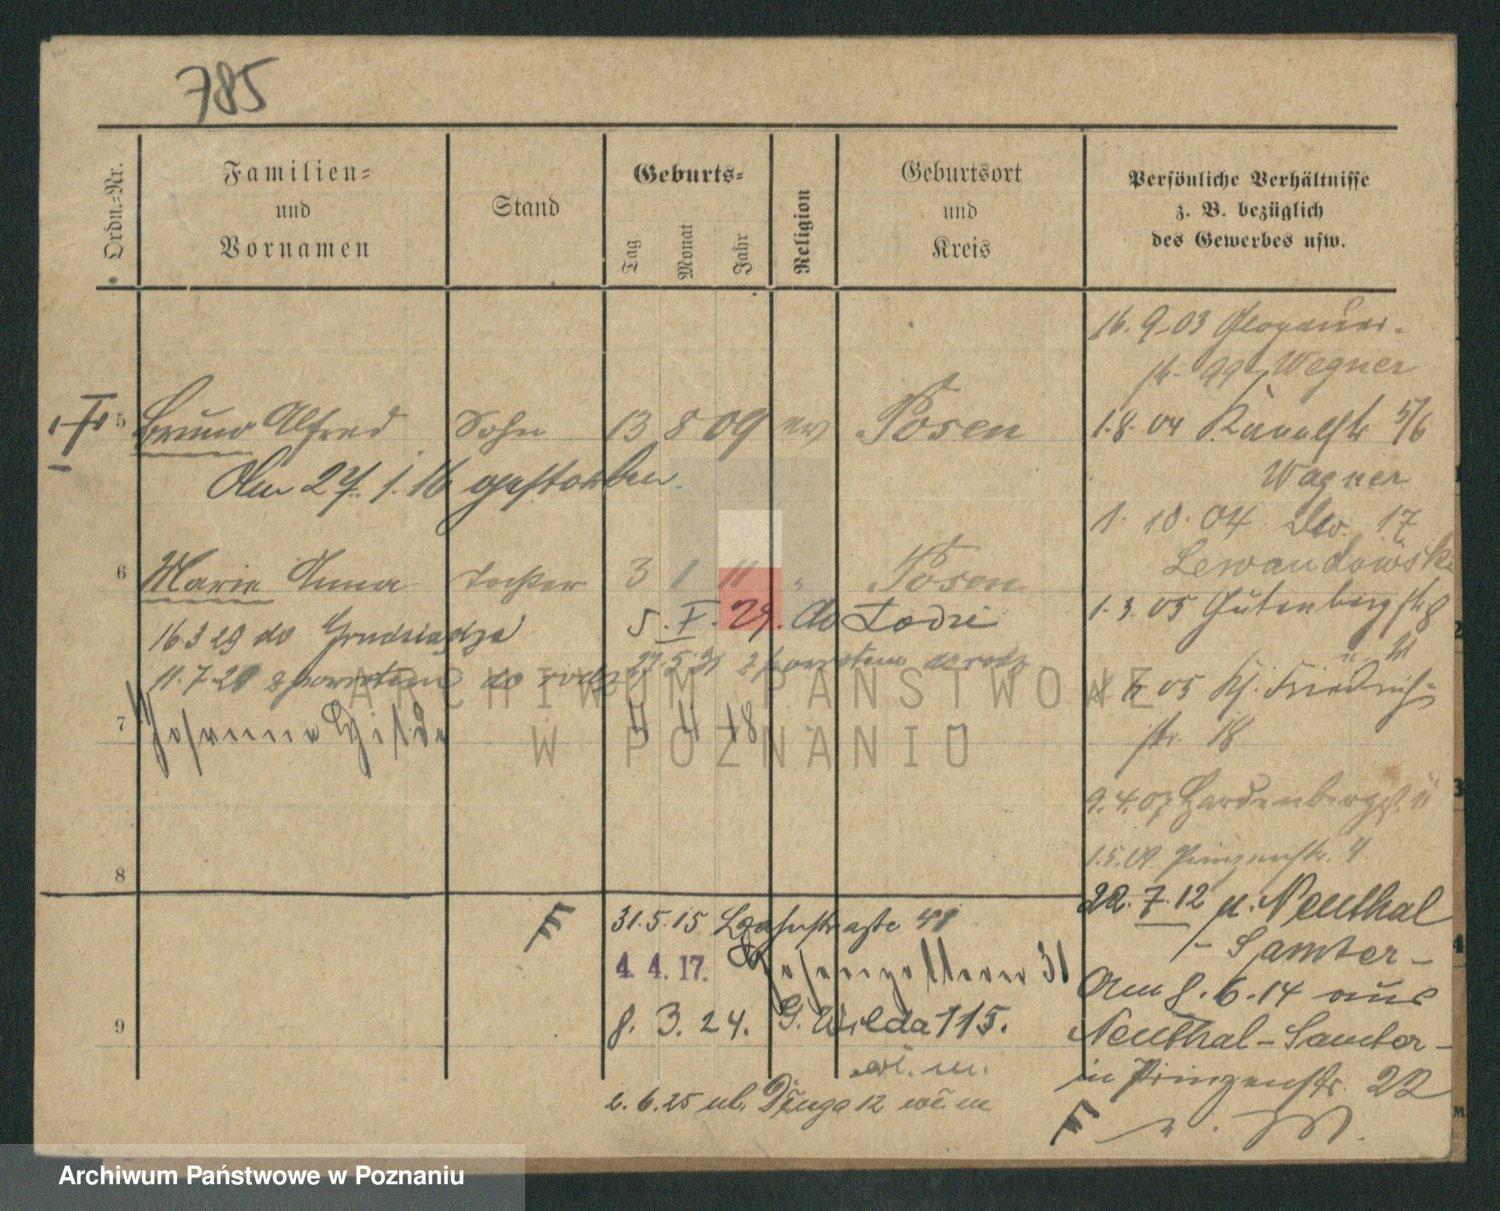 785
Ordn.-Nr.
Familien-
und
Vornamen
Stand
Geburts-
Tag
Monat
Jahr
Religion
Geburtsort
und
Kreis
Persönliche Verhältnisse
z. B. bezüglich
des Gewerbes usw.
5 Bruno Alfred Sohn 13 8 09 ev Posen
Am 27. 1. 16 gestorben.
6 Marie Anna Tochter 3 1 11 " Posen
5. I. 29. do Łodzi
16 3 29 do Grudziądza
11.7.29 z powrotem do
27.5.31 z powrotem
7 Johanna Hilde 4 4 18
8
9
31.5.15
4. 4. 17. Hohenzollern 31
8. 3. 24. G. Wilda 115.
w. m.
2. 6. 25 ul. Długa 12 w. m
16. 9. 03
str. Wegner
1. 8. 04 Kanalstr 5/6
Wagner
1. 10. 04 do. 17
Lewandowski
1. 3. 05 Gutenbergstr 8
05 Friedrich-
str. 18
9. 4. 07 Hardenbergst. 11
1.5.09. Prinzenstr. 4
22. 7. 12 n. Neuthal
- Samter -
Am 8. 6. 14 aus
Neuthal - Samter -
in Prinzenstr. 22
ARCHIWUM PAŃSTWOWE
W POZNANIU
Archiwum Państwowe w Poznaniu